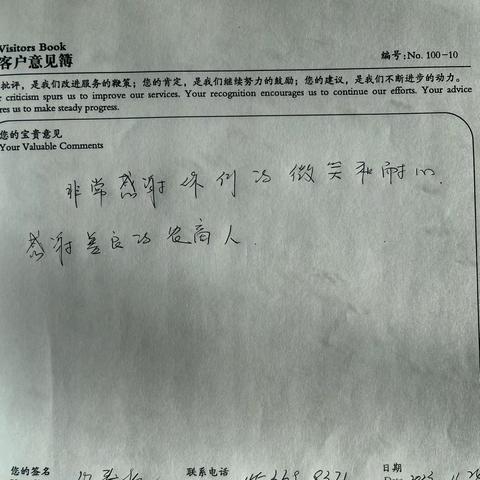 Visitors Book
客户意见簿
编号:No. 100-10
批评，是我们改进服务的鞭策；您的肯定，是我们继续努力的鼓励；您的建议，是我们不断进步的动力。
criticism spurs us to improve our services. Your recognition encourages us to continue our efforts. Your advice
res us to make steady progress.
您的宝贵意见
Your Valuable Comments
非常感谢你们的微笑和耐心.
感谢善良的农商人.
您的签名
联系电话
日期